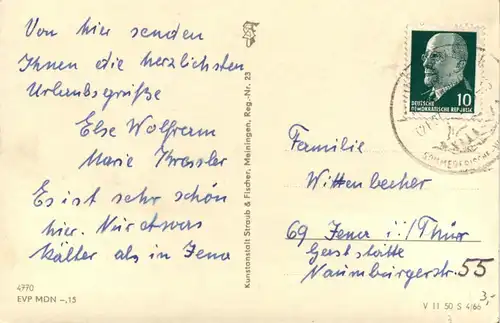 Von hier senden
Ihnen die herzlichsten
Urlaubsgrüße
Else Wolfram
Marie Kressler
Es ist sehr schön
hier. Nur etwas
kälter als in Jena
4770
EVP MDN –,15
Kunstanstalt Straub & Fischer, Meiningen, Reg.-Nr. 23
DEUTSCHE
DEMOKRATISCHE REPUBLIK
10
Familie
Wittenbecher
69 Jena i./Thür
Gaststätte
Naumburgerstr. 55
3,-
V 11 50 S 4/66